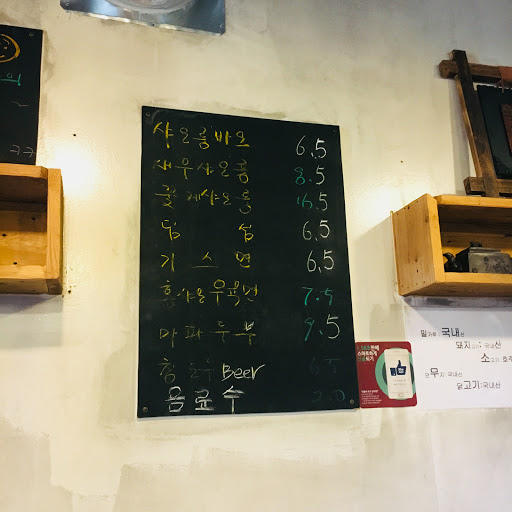 샤오롱바오 6.5
새우샤오롱 8.5
꽃게샤오롱 10.5
딤섬 6.5
기스면 6.5
홍샤오우육면 7.5
마파두부 9.5
Beer
음료수 2.0
밀가루: 국내산
돼지고기: 국내산
소고기: 호주
단무지: 국내산
닭고기: 국내산